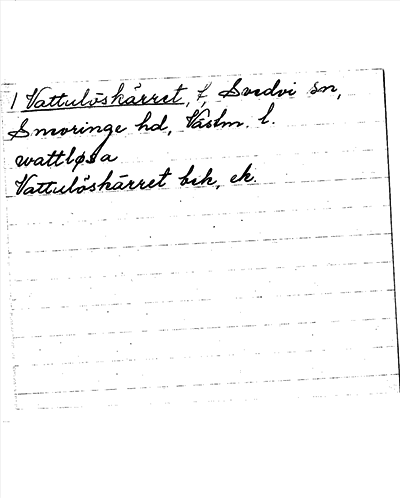 1 Vattulöskärret, f, Svedvi sn,
Snevringe hd, Västm. l.
wattløsa
Vattulöskärret bik, ek.